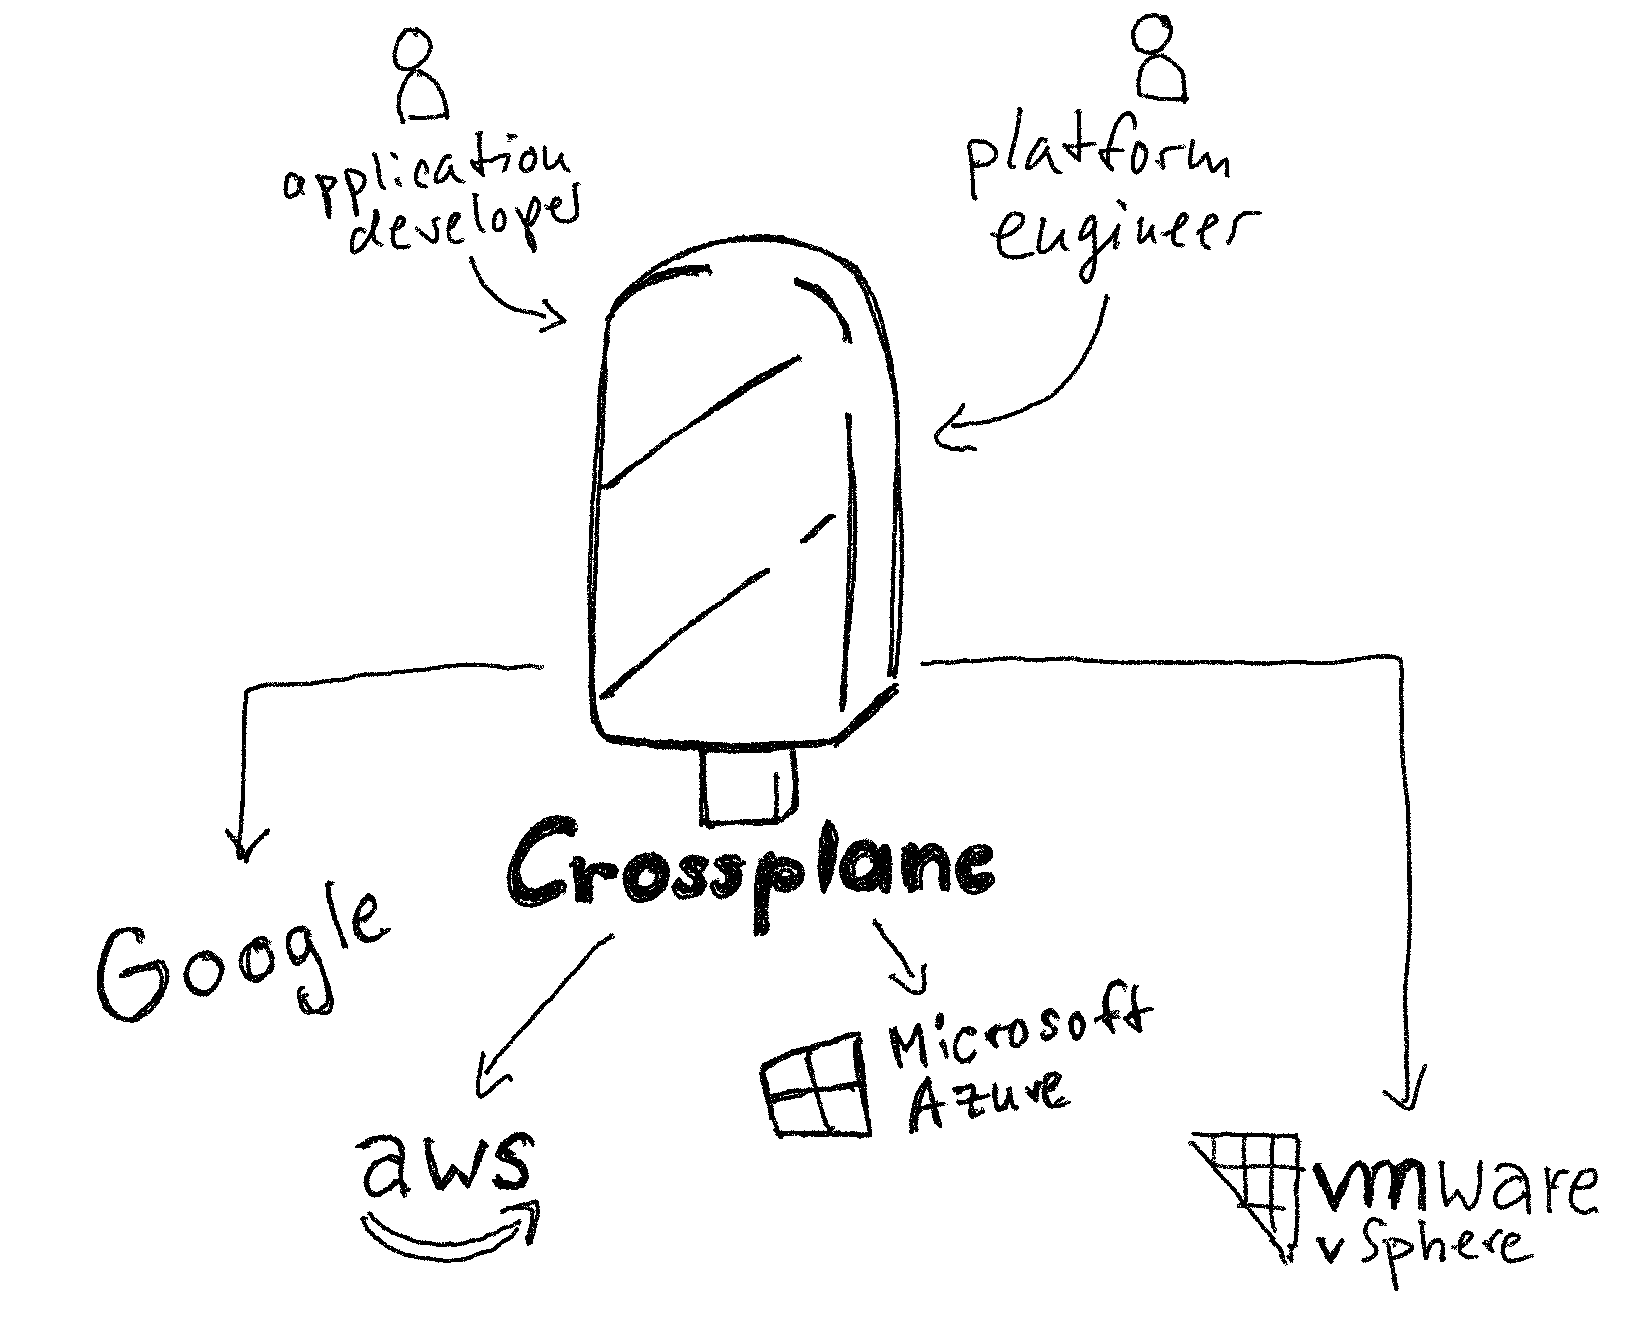 application
developer
platform
engineer
Crossplane
Google
aws
Microsoft
Azure
vmware
vSphere